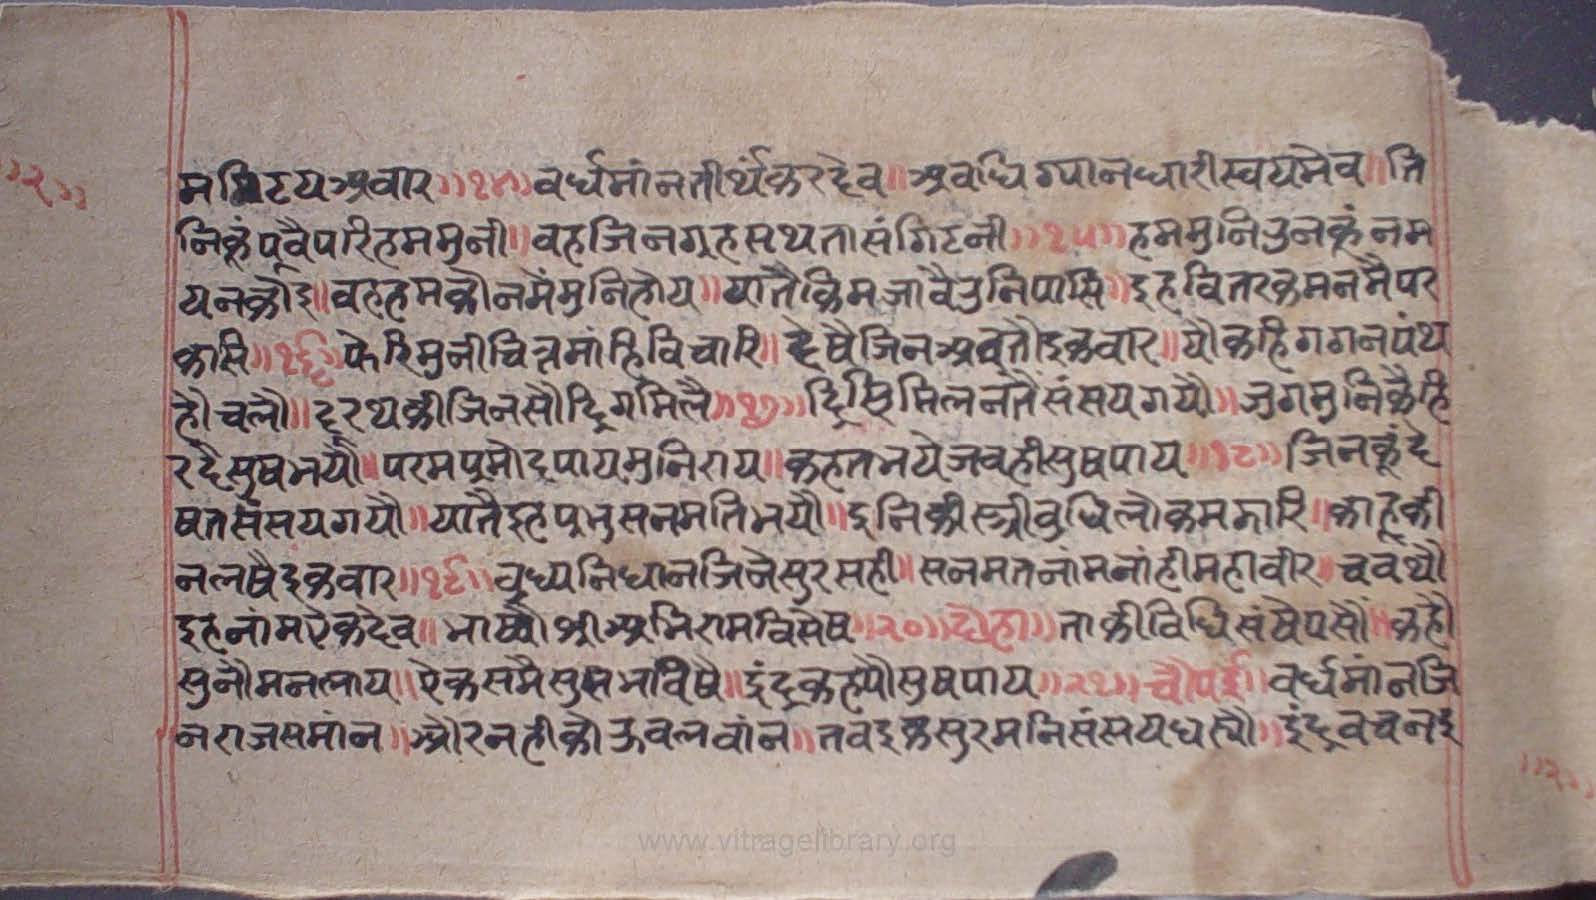 ॥२॥
म मिटय अवार ॥१४॥ वर्धमांन तीर्थंकर देव ॥ अवधि ग्यान धारी स्वयमेव ॥ ति
निकूं पूवै परि हम मुनी ॥ वह जिन गृहसथ तासं गिटनी ॥१५॥ हम मुनि उनकूं नम
य न कोइ ॥ वह हमकौ नमैं मुनि होय ॥ यातै किम जावै उनि पासि ॥ इह वितरक मन मै पर
कासि ॥१६॥ फेरि मुनी चित्र मांहि विचारि ॥ देषै जिन अवतौ इकवार ॥ यौ कहि गगन पंथ
हौ चलौ ॥ दूरथकी जिनसौ द्रिग मिलै ॥१७॥ द्रिष्टि मिलनतैं संसय गयौ ॥ जुग मुनिकै हि
रदै सुष भयौ ॥ परम प्रमोद पाय मुनिराय ॥ कहत भये जवही सुष पाय ॥१८॥ जिनकूं दे
षत संसय गयौ ॥ यातै इह प्रभु सनमति भयौ ॥ इनिकी स्त्री वुधि लोक मझारि ॥ काहूकी
न लषै इकवार ॥१९॥ वुध्य निधान जिनेसुर सही ॥ सनमत नांम नांही महावीर ॥ चवथौ
इह नांम ऐक देव ॥ भाष्यौ श्री अभिराम विसेष ॥२०॥ दोहा ॥ ताकी विधि संषेपसौं ॥ कहौ
सुनौ मन लाय ॥ ऐक समै सुभ सभा विषै ॥ इंद्र कह्यौ सुष पाय ॥२१॥ चौपई ॥ वर्धमांन जि
नराज समांन ॥ और नही कोऊ वलवांन ॥ तव इक सुर मनि संसय धस्यौ ॥ इंद्र वचन इ
॥२॥
www.vitragelibrary.org